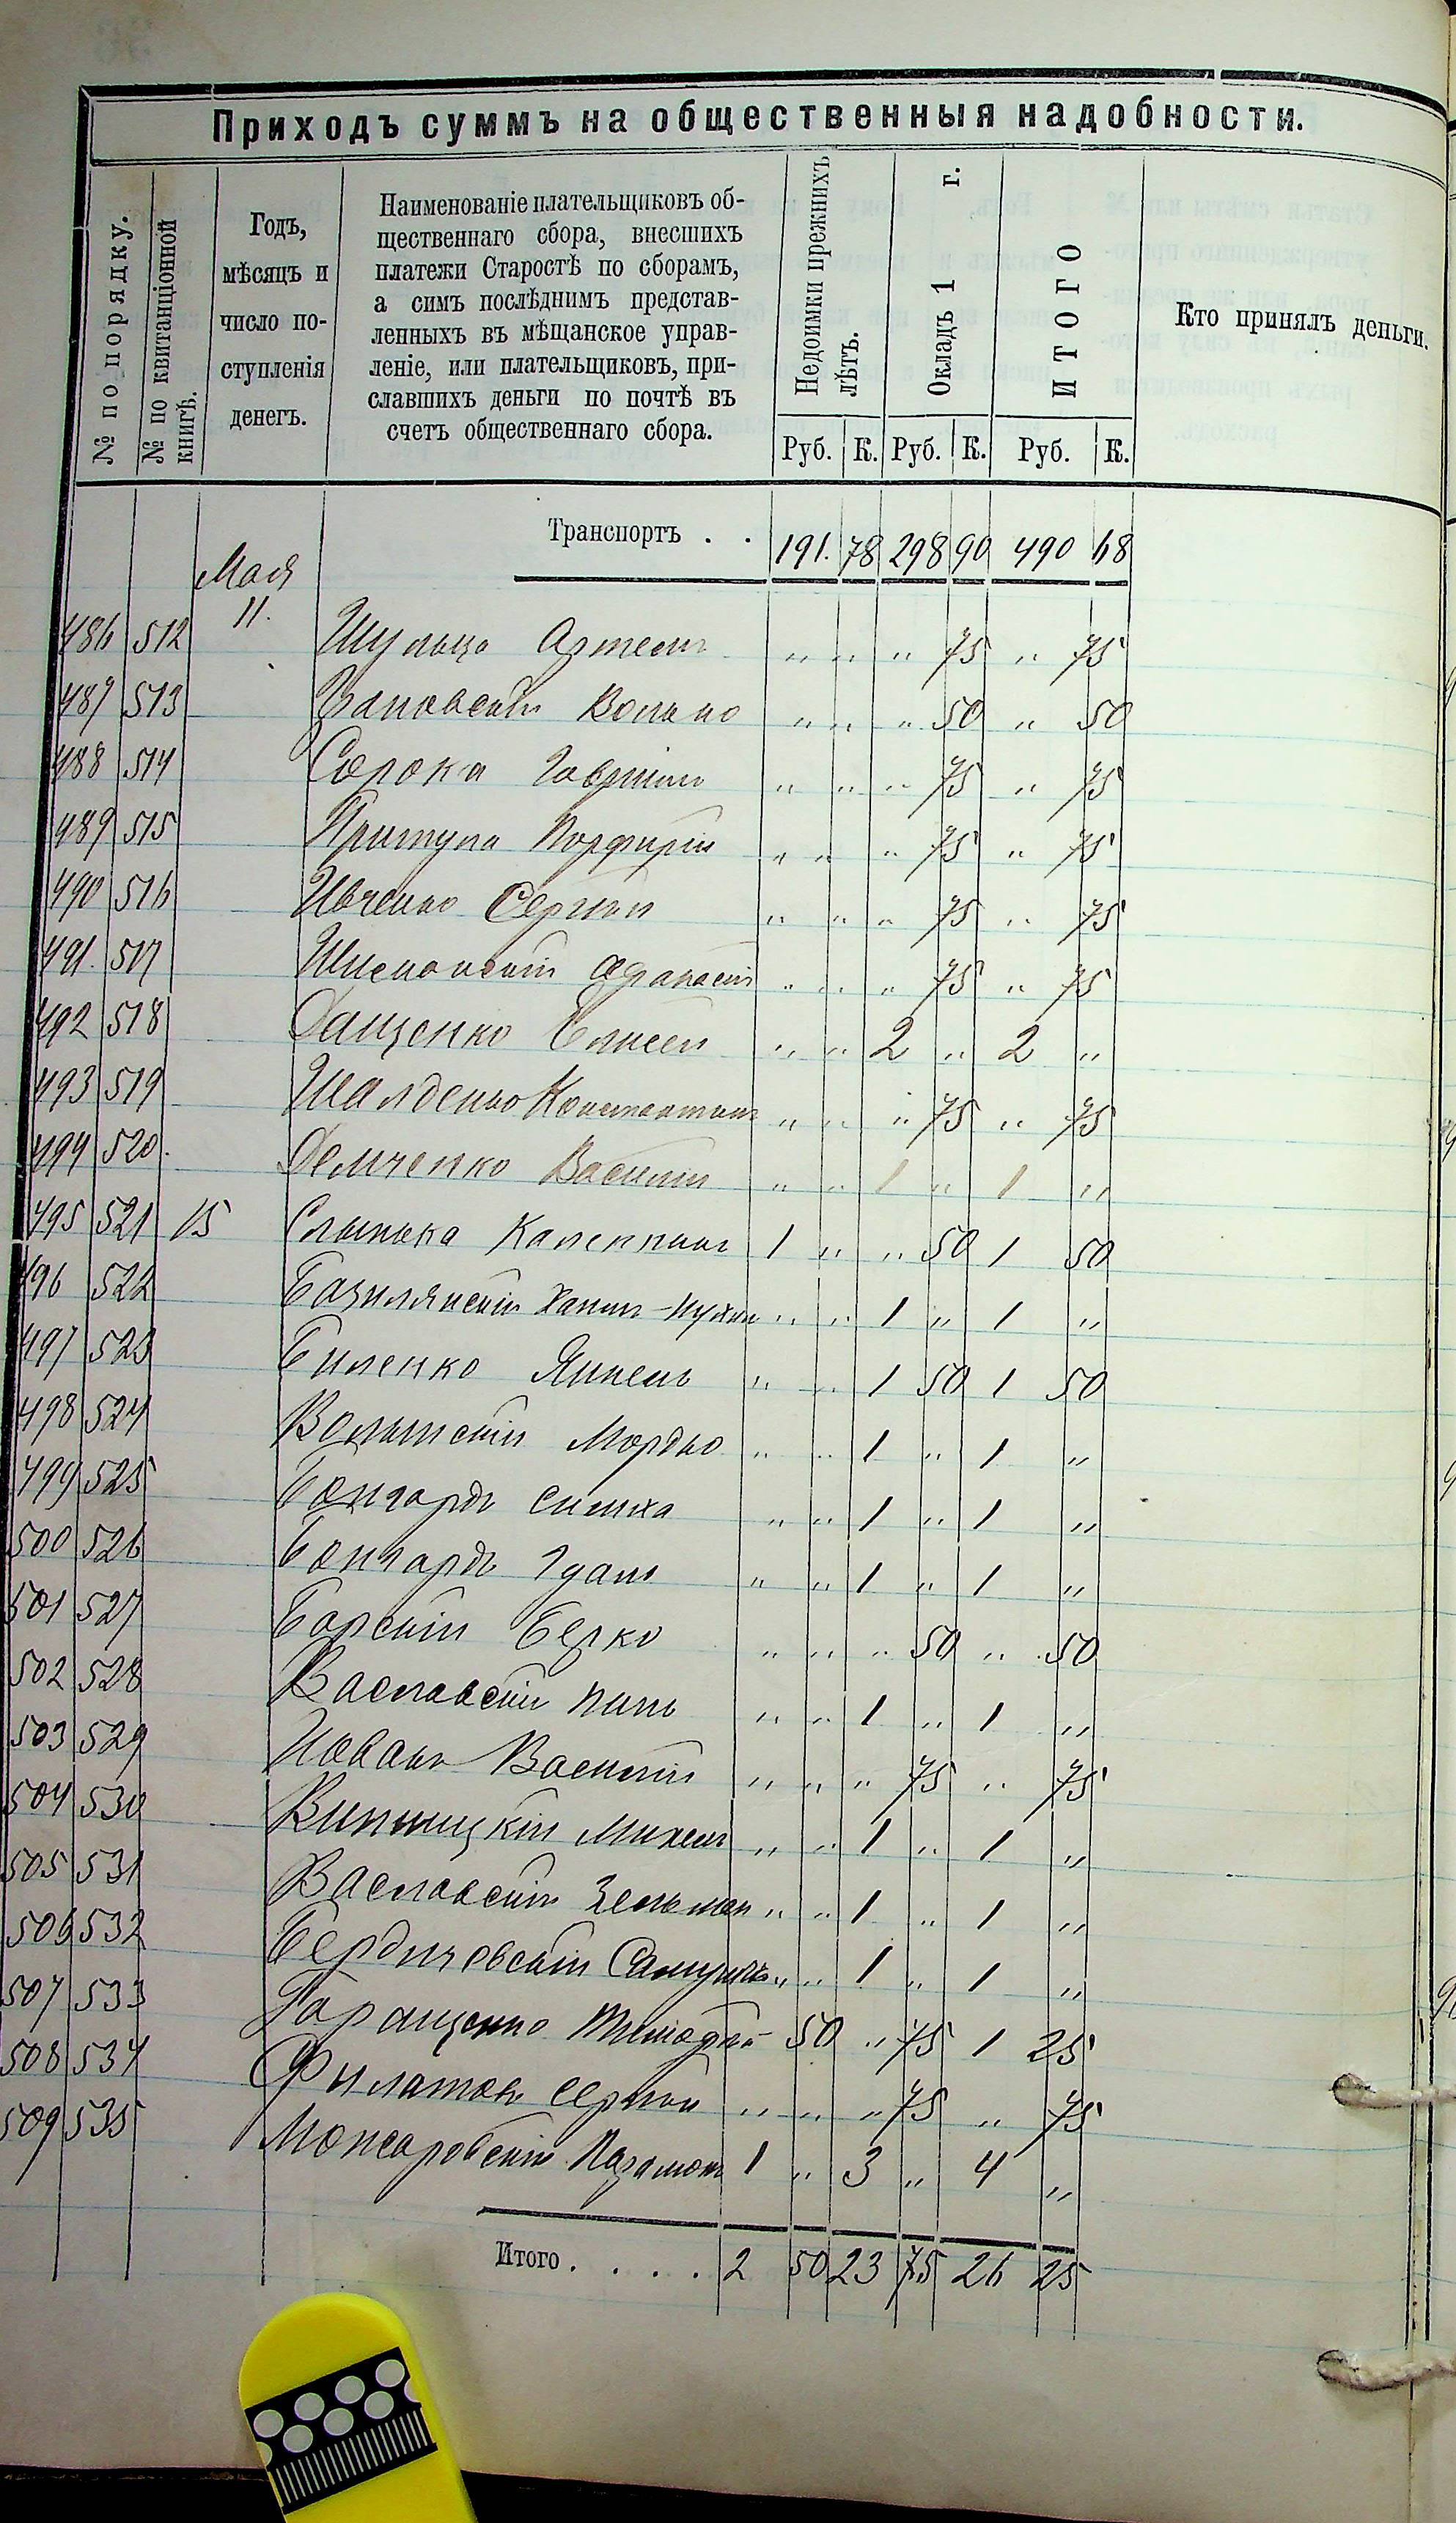 Приходъ суммъ на общественныя надобности.
№ по порядку.
№ по квитанціонной книгѣ.
Годъ,
мѣсяцъ и
число по-
ступленія
денегъ.
Наименованіе плательщиковъ об-
щественнаго сбора, внесшихъ
платежи Старостѣ по сборамъ,
а симъ послѣднимъ представ-
ленныхъ въ мѣщанское управ-
леніе, или плательщиковъ, при-
славшихъ деньги по почтѣ въ
счетъ общественнаго сбора.
Недоимки прежнихъ лѣтъ.
Окладъ 1 г.
ИТОГО
Кто принялъ деньги.
Руб. К. Руб. К. Руб. К.
Транспортъ . . 191. 78 298 90 490 68
Мая
486 512 11. Шульга Артемъ " " " 75 " 75
487 513 " " " 50 " 50
488 514 Сорока Гавріилъ " " " 75 " 75
489 515 Притула Порфирій " " " 75 " 75
490 516 Ивченко Сергѣй " " " 75 " 75
491. 517 Афанасій " " " 75 " 75
492 518 Дащенко Елисей " " 2 " 2 "
493 519 Шалденко Константинъ " " " 75 " 75
494 520. Демченко Василій " " 1 " 1 "
495 521 15 1 " " 50 1 50
496 522 Базилянскій " " 1 " 1 "
497 523 Биленко Янкель " " 1 50 1 50
498 524 Волынскій Мордко " " 1 " 1 "
499 525 Бонгардъ Симха " " 1 " 1 "
500 526 Бонгардъ " " 1 " 1 "
501 527 Барскій Берко " " " 50 " 50
502 528 Ваславскій " " 1 " 1 "
503 529 Василій " " " 75 " 75
504 530 Винницкій Михель " " 1 " 1 "
505 531 Ваславскій Зельман " " 1 " 1 "
506 532 Бердичевскій " " 1 " 1 "
507 533 Гаращенко Тимофей 50 " 75 1 25
508 534 Филатовъ Сергѣй " " " 75 " 75
509 535 Можаровскій 1 " 3 " 4 "
Итого . . . . 2 50 23 75 26 25